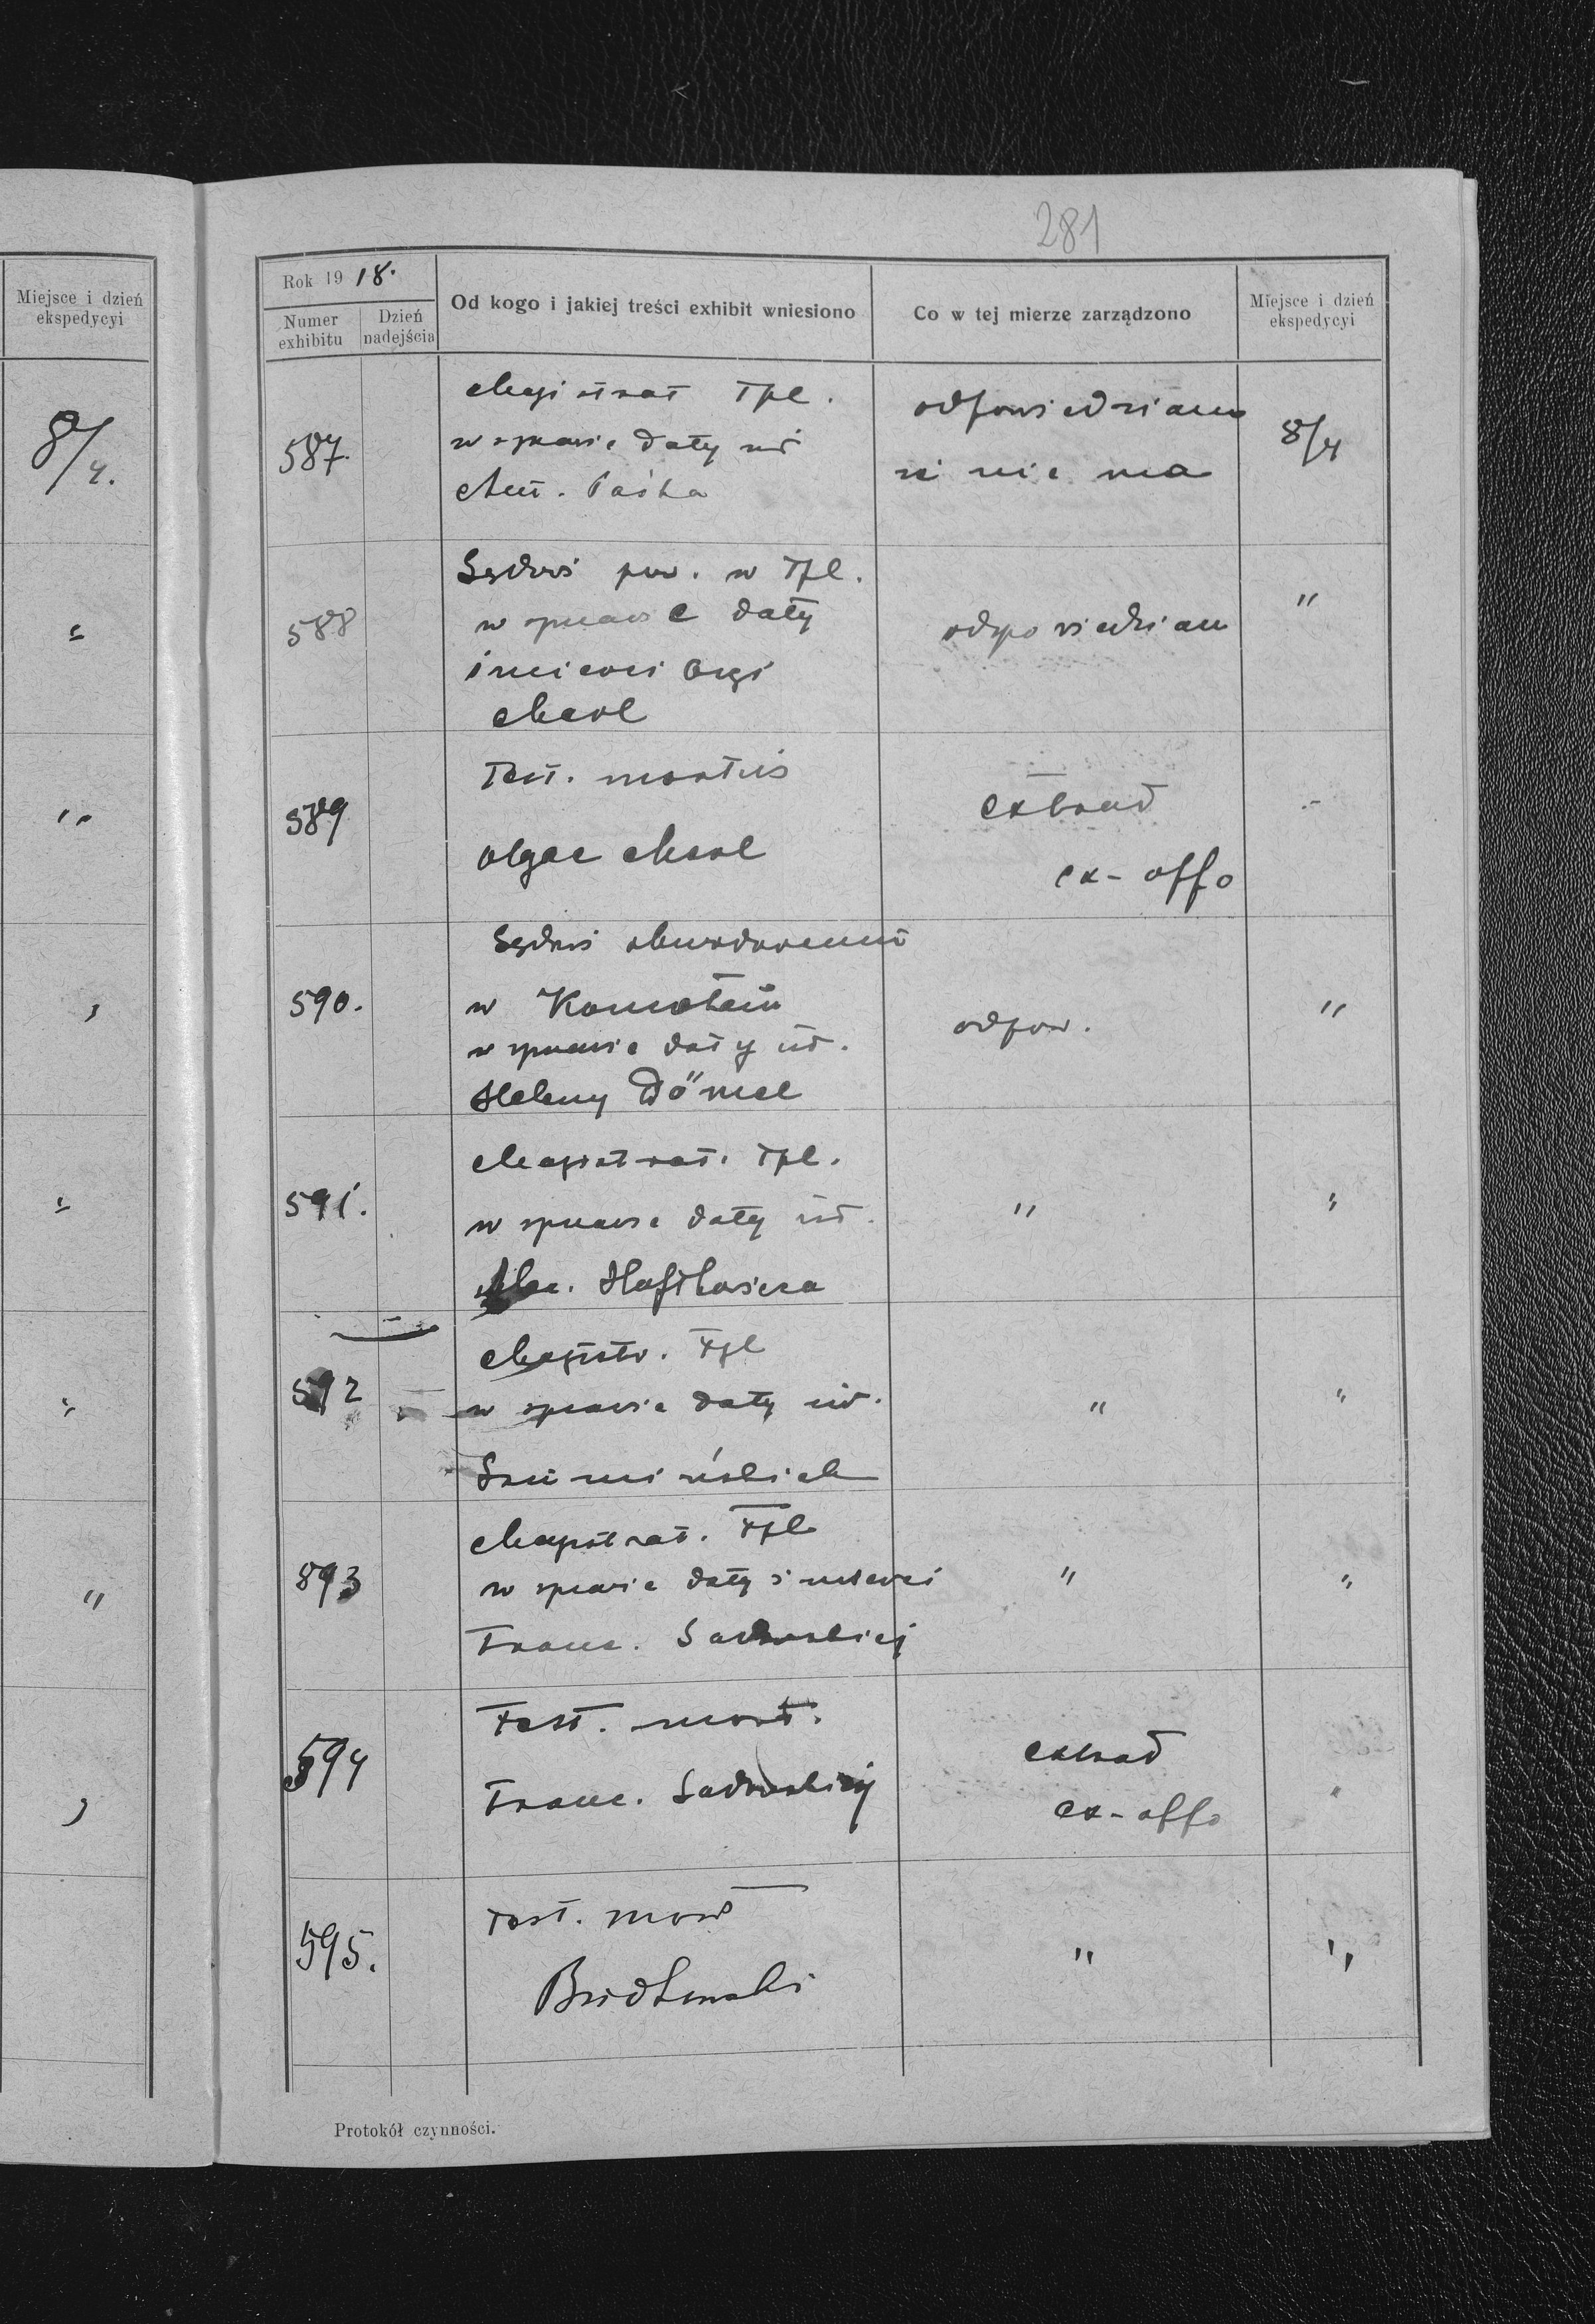 281
Miejsce i dzień
ekspedycyi
8/4.
"
"
"
"
"
"
"
Rok 1918.
Numer
exhibitu
Dzień
nadejścia
Od kogo i jakiej treści exhibit wniesiono
Co w tej mierze zarządzono
Miejsce i dzień
ekspedycyi
587.
Magistrat Tpl.
w sprawie daty ur
Ant.
odpowiedziano
że nie ma
8/4
588
Sądowi pow. w Tpl.
w sprawie daty
śmierci Olgi
odpowiedziano
"
589
Test. mortis
Olgae
extrad
ex-offo
"
590.
Sądowi
w Komotau
w sprawie daty ur.
Heleny Dömel
odpow.
"
591.
Magistrat. Tpl.
w sprawie daty ur.
"
"
592
Magistr. Tpl
w sprawie daty ur.
Szumińskich
"
"
593
Magistrat. Tpl
w sprawie daty śmierci
Franc. Sadowskiej
"
"
594
Test. mort.
Franc. Sadowskiej
extrad
ex-offo
"
595.
Test. mort
"
"
Protokół czynności.